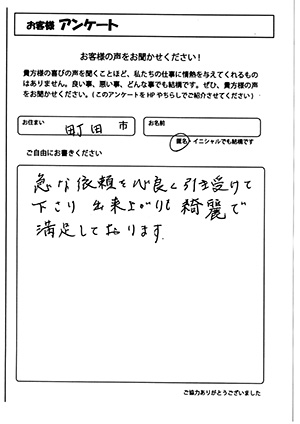 お客様 アンケート
お客様の声をお聞かせください!
貴方様の喜びの声を聞くことほど、私たちの仕事に情熱を与えてくれるもの
はありません。良い事、悪い事、どんな事でも結構です。ぜひ、貴方様の声
をお聞かせください。(このアンケートをHPやちらしでご紹介させてください)
お住まい
町田 市
お名前
匿名・イニシャルでも結構です
ご自由にお書きください
急な依頼を心良く引き受けて
下さり 出来上がりも 綺麗で
満足しております.
ご協力ありがとうございました